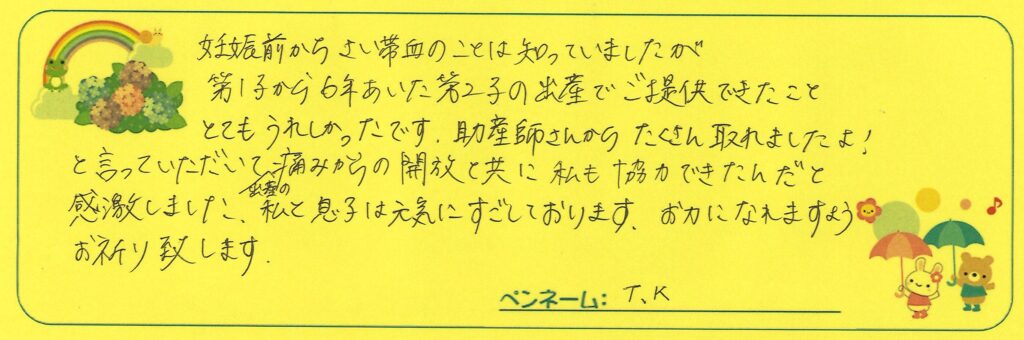 妊娠前からさい帯血のことは知っていましたが
第1子から6年あいた第2子の出産でご提供できたこと
とてもうれしかったです。助産師さんからたくさん取れましたよ!
と言っていただいて、出産の痛みからの開放と共に私も協力できたんだと
感激しました、私と息子は元気にすごしております。お力になれますよう
お祈り致します。
ペンネーム: T、K